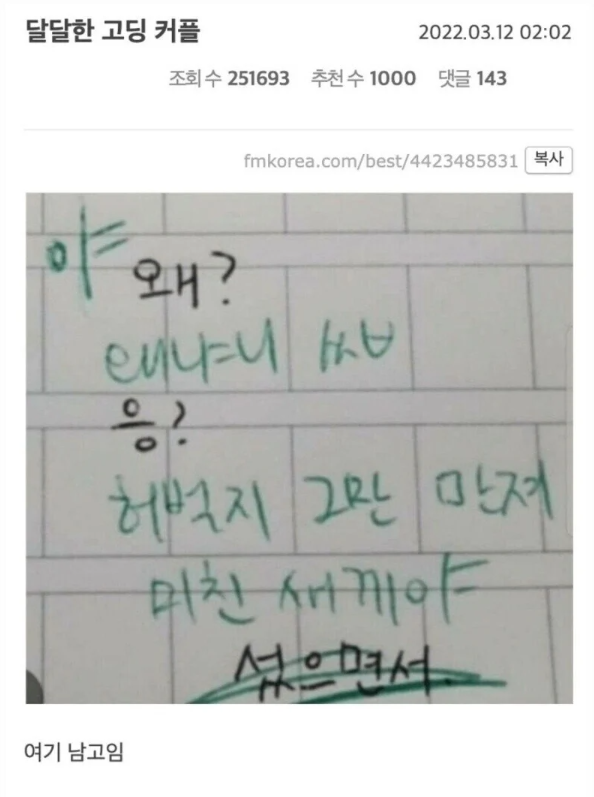 달달한 고딩 커플
2022.03.12 02:02
조회 수 251693 추천 수 1000 댓글 143
fmkorea.com/best/4423485831 복사
야
왜?
왜냐니 ㅆㅂ
응?
허벅지 그만 만져
미친 새끼야
섰으면서.
여기 남고임